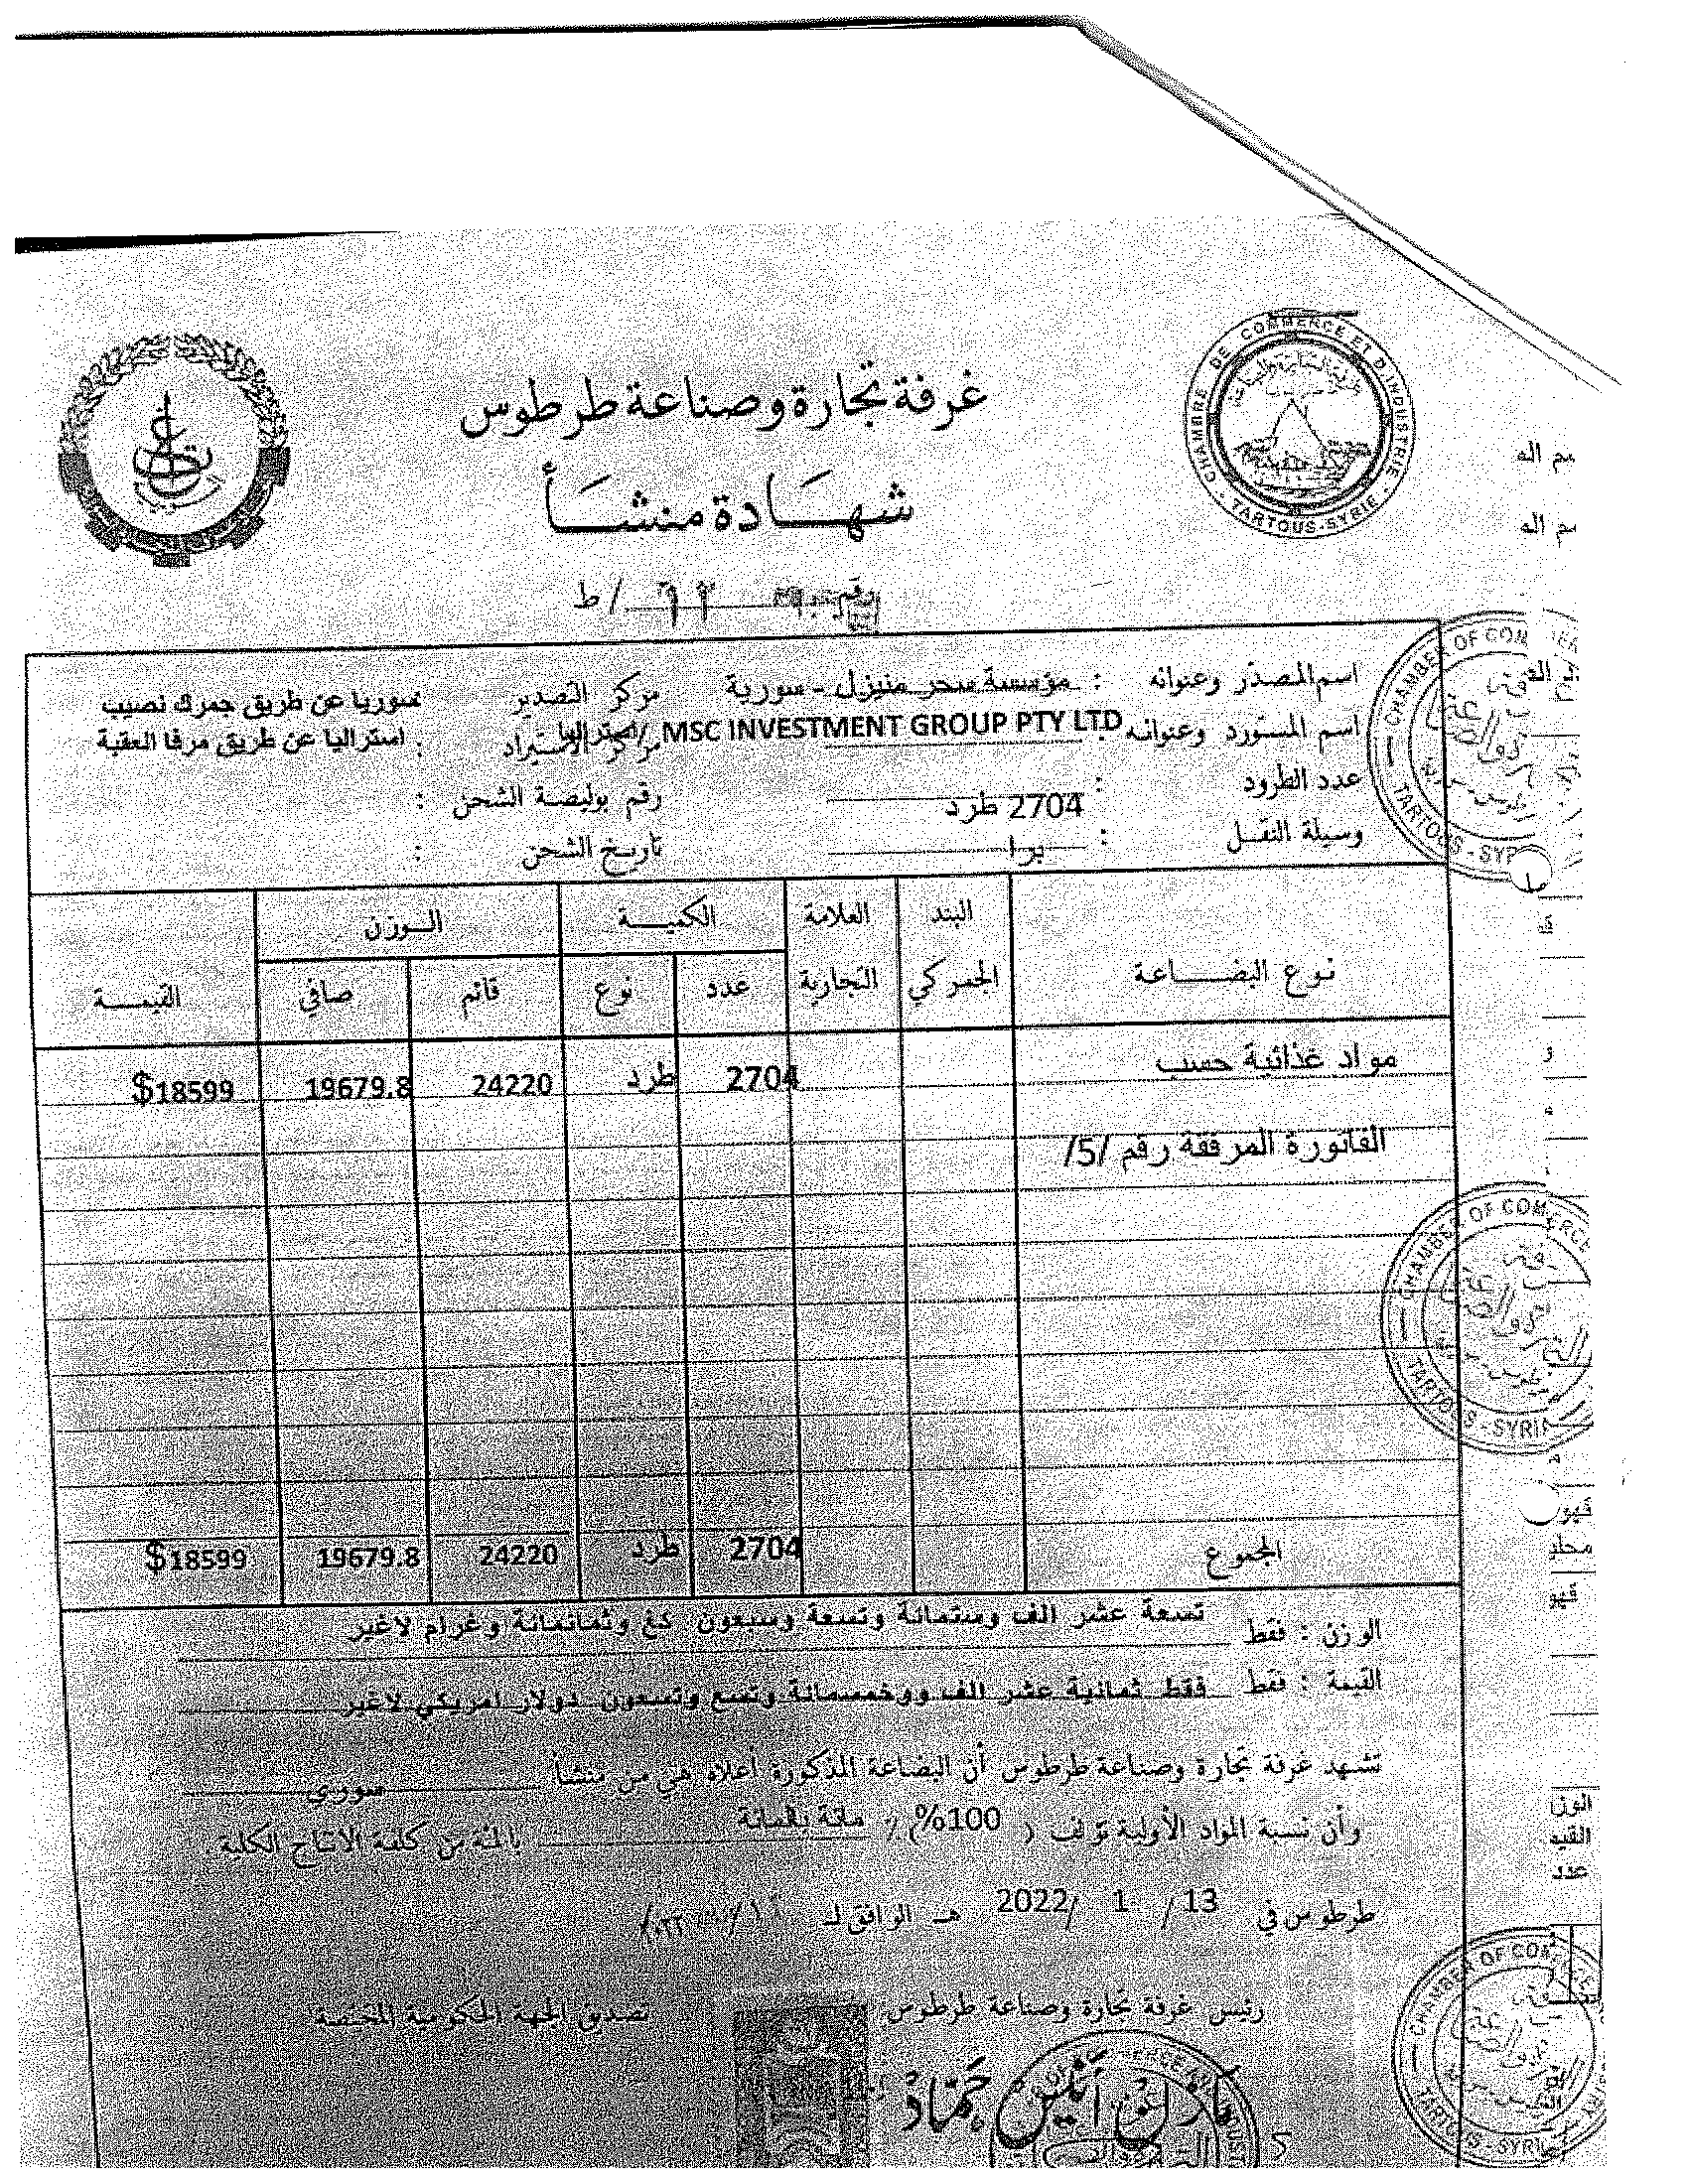 غرفة تجارة وصناعة طرطوس
CHAMBRE DE COMMERCE ET D'INDUSTRIE
TARTOUS-SYRIE
شهادة منشأ
رقم ٦٢ /ط
اسم المصدّر وعنوانه : مؤسسة سحر منيزل - سورية
مركز التصدير سوريا عن طريق جمرك نصيب
اسم المستورد وعنوانه : MSC INVESTMENT GROUP PTY LTD /استراليا
مركز الاستيراد : استراليا عن طريق مرفا العقبة
عدد الطرود : 2704 طرد
رقم بوليصة الشحن :
وسيلة النقل : برا
تاريخ الشحن :
نوع البضاعة البند الجمركي العلامة التجارية الكمية الوزن القيمة
عدد نوع قائم صافي
مواد غذائية حسب 2704 طرد 24220 19679.8 $18599
الفاتورة المرفقة رقم /5/
المجموع 2704 طرد 24220 19679.8 $18599
الوزن : فقط تسعة عشر الف وستمائة وتسعة وسبعون كغ وثمانمائة وغرام لاغير
القيمة : فقط فقط ثمانية عشر الف ووخمسمائة وتسع وتسعون دولار امريكي لاغير
تشهد غرفة تجارة وصناعة طرطوس أن البضاعة المذكورة أعلاه هي من منشأ سوري
وأن نسبة المواد الأولية تؤلف ( 100% )٪ مائة بالمائة بالمئة من كلفة الانتاج الكلية .
طرطوس في 13 / 1 / 2022 هـ الموافق لـ
رئيس غرفة تجارة وصناعة طرطوس
تصديق الجهة الحكومية المختصة
مازن أنيس حماد
CHAMBER OF COMMERCE
TARTOUS - SYRIA
CHAMBER OF COMMERCE
TARTOUS - SYRIA
CHAMBER OF COMMERCE
TARTOUS - SYRIA
الوزن
القيم
عدد